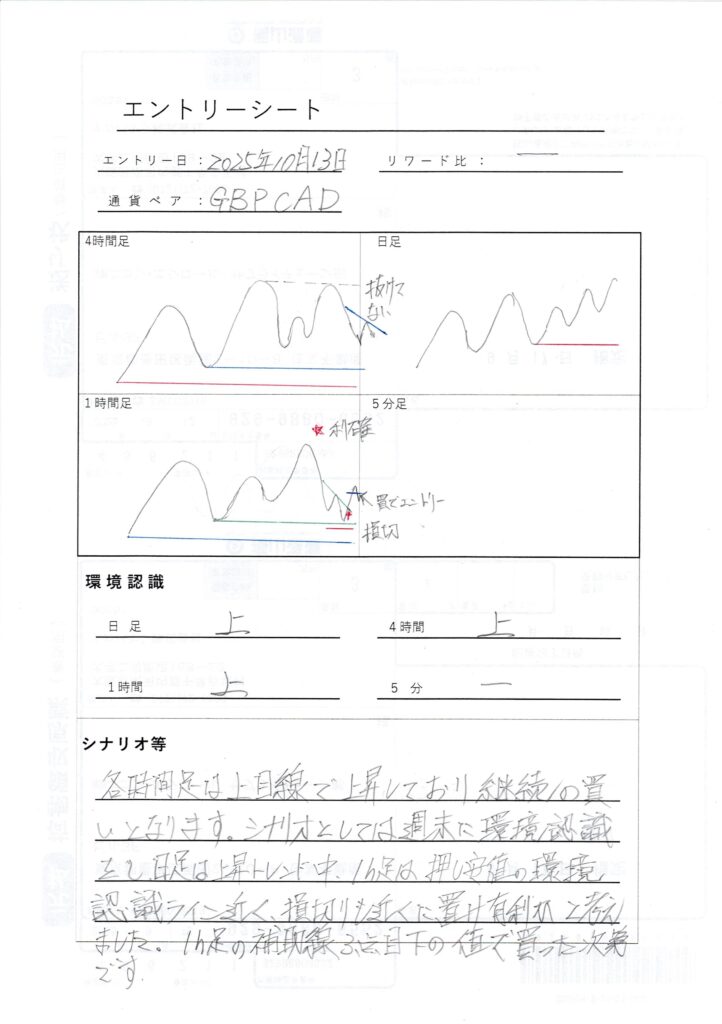 エントリーシート
エントリー日：2025年10月13日
リワード比：ー
通貨ペア：GBPCAD
4時間足
抜けて
ない
日足
1時間足
利確
買でエントリー
損切
5分足
環境認識
日足 上
4時間 上
1時間 上
5分 ー
シナリオ等
各時間足は上目線で上昇しており継続の買
いとなります。シナリオとしては週末に環境認識
をし日足は上昇トレンド中、1h足は押し安値の環境
認識ライン近く、損切りも近くに置け有利かと考え
ました。1h足の補助線3点目下の値で買った次第
です.